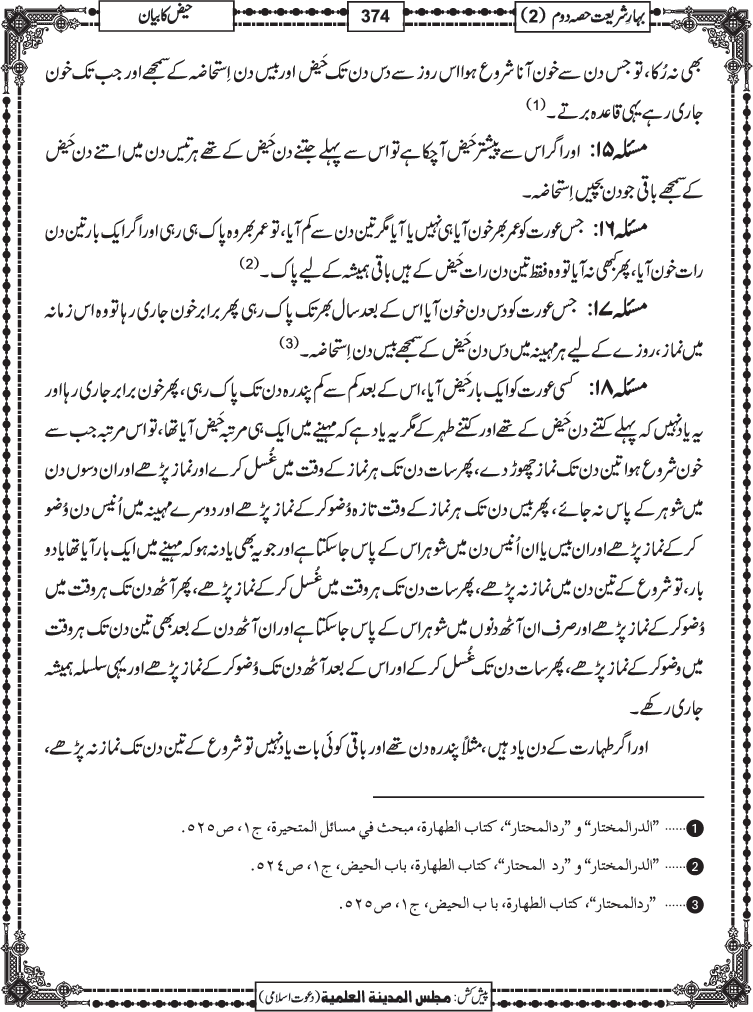 بہارِ شریعت حصہ دوم (2)
374
حیض کا بیان
بھی نہ رُکا، تو جس دن سے خون آنا شروع ہوا اس روز سے دس دن تک حَیض اور بیس دن اِستحاضہ کے سمجھے اور جب تک خون
جاری رہے یہی قاعدہ برتے۔ (1)
مسئلہ ۱۵: اور اگر اس سے پیشتر حَیض آچکا ہے تو اس سے پہلے جتنے دن حَیض کے تھے ہر تیس دن میں اتنے دن حَیض
کے سمجھے باقی جو دن بچیں اِستحاضہ۔
مسئلہ ۱۶: جس عورت کو عمر بھر خون آیا ہی نہیں یا آیا مگر تین دن سے کم آیا، تو عمر بھر وہ پاک ہی رہی اور اگر ایک بار تین دن
رات خون آیا، پھر کبھی نہ آیا تو وہ فقط تین دن رات حَیض کے ہیں باقی ہمیشہ کے لیے پاک۔ (2)
مسئلہ ۱۷: جس عورت کو دس دن خون آیا اس کے بعد سال بھر تک پاک رہی پھر برابر خون جاری رہا تو وہ اس زمانہ
میں نماز، روزے کے لیے ہر مہینہ میں دس دن حَیض کے سمجھے بیس دن اِستحاضہ۔ (3)
مسئلہ ۱۸: کسی عورت کو ایک بار حَیض آیا، اس کے بعد کم سے کم پندرہ دن تک پاک رہی، پھر خون برابر جاری رہا اور
یہ یاد نہیں کہ پہلے کتنے دن حَیض کے تھے اور کتنے طہر کے مگر یہ یاد ہے کہ مہینے میں ایک ہی مرتبہ حَیض آیا تھا، تو اس مرتبہ جب سے
خون شروع ہوا تین دن تک نماز چھوڑ دے، پھر سات دن تک ہر نماز کے وقت میں غُسل کرے اور نماز پڑھے اور ان دسوں دن
میں شوہر کے پاس نہ جائے، پھر بیس دن تک ہر نماز کے وقت تازہ وُضو کر کے نماز پڑھے اور دوسرے مہینہ میں اُنیس دن وُضو
کر کے نماز پڑھے اور ان بیس یا ان اُنیس دن میں شوہر اس کے پاس جا سکتا ہے اور جو یہ بھی یاد نہ ہو کہ مہینے میں ایک بار آیا تھا یا دو
بار، تو شروع کے تین دن میں نماز نہ پڑھے، پھر سات دن تک ہر وقت میں غُسل کر کے نماز پڑھے، پھر آٹھ دن تک ہر وقت میں
وُضو کر کے نماز پڑھے اور صرف ان آٹھ دنوں میں شوہر اس کے پاس جا سکتا ہے اور ان آٹھ دن کے بعد بھی تین دن تک ہر وقت
میں وضو کر کے نماز پڑھے، پھر سات دن تک غُسل کر کے اور اس کے بعد آٹھ دن تک وُضو کر کے نماز پڑھے اور یہی سلسلہ ہمیشہ
جاری رکھے۔
اور اگر طہارت کے دن یاد ہیں، مثلاً پندرہ دن تھے اور باقی کوئی بات یاد نہیں تو شروع کے تین دن تک نماز نہ پڑھے،
1 ...... "الدرالمختار" و "ردالمحتار"، كتاب الطهارة، مبحث في مسائل المتحيرة، ج١، ص٥٢٥.
2 ...... "الدرالمختار" و "رد المحتار"، كتاب الطهارة، باب الحيض، ج١، ص٥٢٤.
3 ...... "ردالمحتار"، كتاب الطهارة، با ب الحيض، ج١، ص٥٢٥.
پیش کش: مجلس المدينة العلمية (دعوت اسلامی)